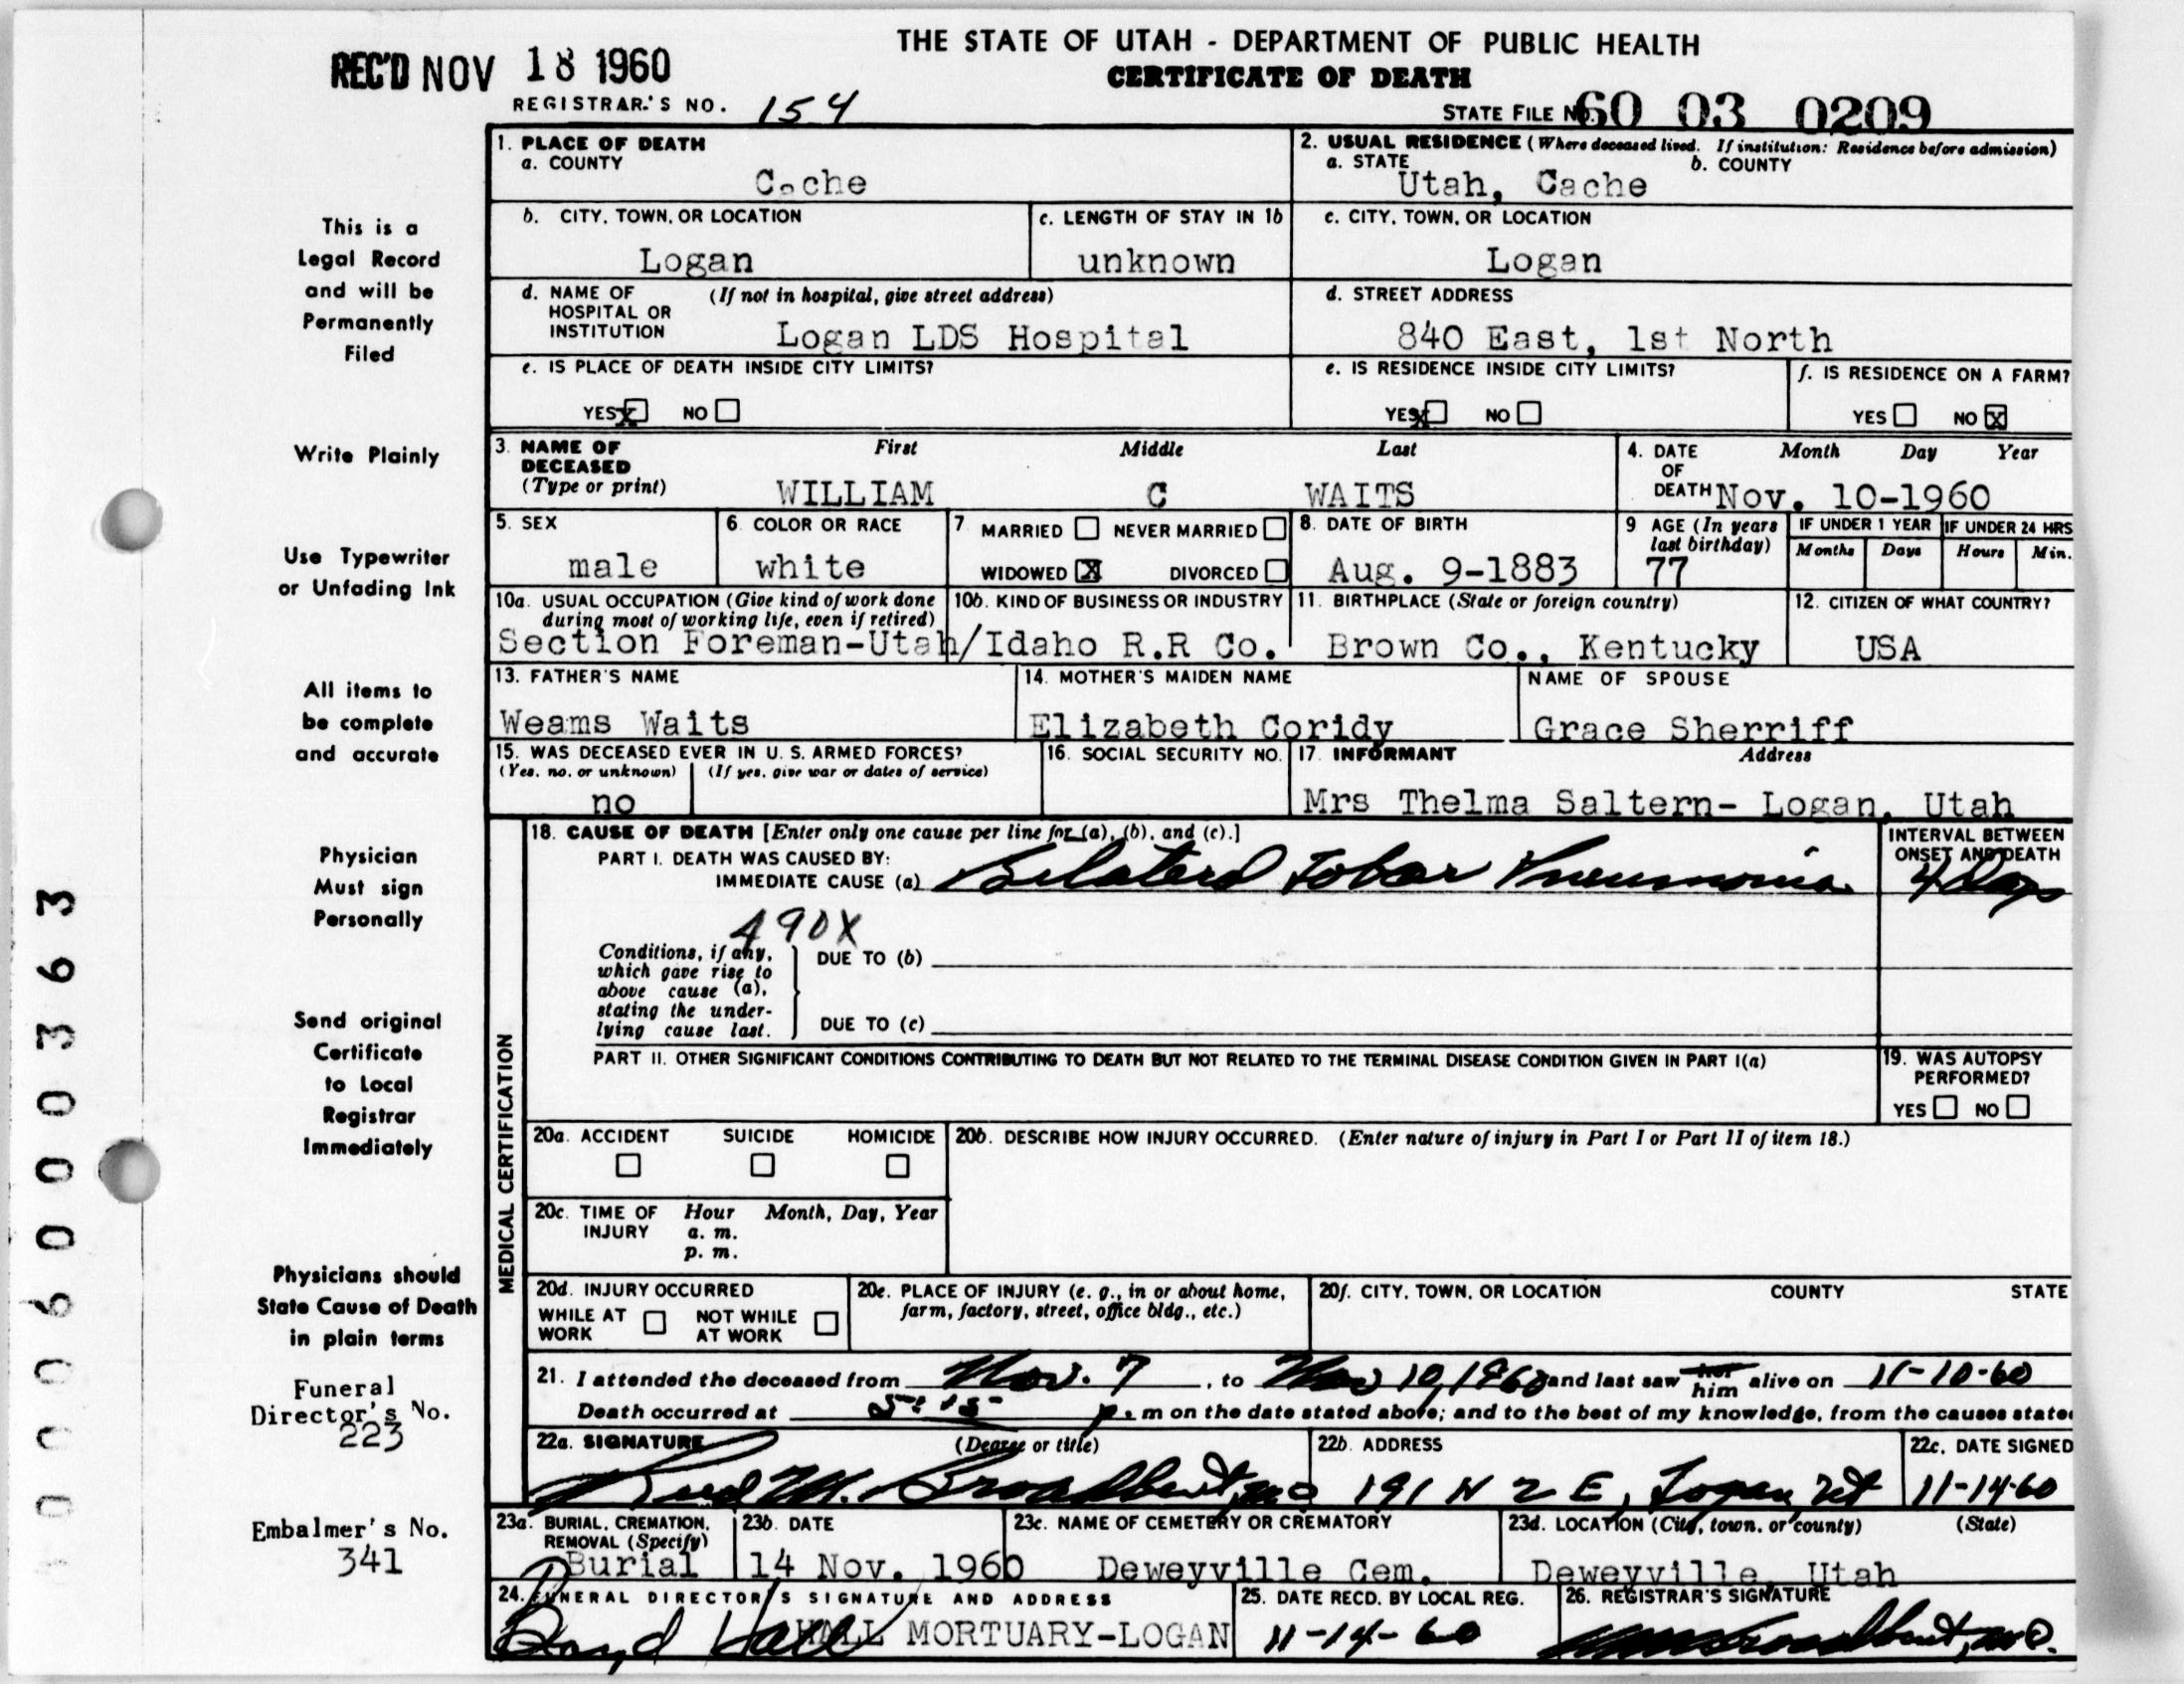 REC'D NOV 18 1960
THE STATE OF UTAH - DEPARTMENT OF PUBLIC HEALTH
CERTIFICATE OF DEATH
REGISTRAR'S NO. 154
STATE FILE No. 60 03 0209
This is a
Legal Record
and will be
Permanently
Filed
Write Plainly
Use Typewriter
or Unfading Ink
All items to
be complete
and accurate
Physician
Must sign
Personally
Send original
Certificate
to Local
Registrar
Immediately
Physicians should
State Cause of Death
in plain terms
Funeral
Director's No.
223
Embalmer's No.
341
0000600 0363
1. PLACE OF DEATH
a. COUNTY
Cache
2. USUAL RESIDENCE (Where deceased lived. If institution: Residence before admission)
a. STATE b. COUNTY
Utah, Cache
b. CITY, TOWN, OR LOCATION
Logan
c. LENGTH OF STAY IN 1b
unknown
c. CITY, TOWN, OR LOCATION
Logan
d. NAME OF HOSPITAL OR INSTITUTION (If not in hospital, give street address)
Logan LDS Hospital
d. STREET ADDRESS
840 East, 1st North
e. IS PLACE OF DEATH INSIDE CITY LIMITS?
YES X NO
e. IS RESIDENCE INSIDE CITY LIMITS?
YES X NO
f. IS RESIDENCE ON A FARM?
YES NO X
3. NAME OF DECEASED (Type or print) First Middle Last
WILLIAM C WAITS
4. DATE OF DEATH Month Day Year
Nov. 10-1960
5. SEX
male
6. COLOR OR RACE
white
7 MARRIED NEVER MARRIED
WIDOWED X DIVORCED
8. DATE OF BIRTH
Aug. 9-1883
9 AGE (In years last birthday)
77
IF UNDER 1 YEAR IF UNDER 24 HRS
Months Days Hours Min.
10a. USUAL OCCUPATION (Give kind of work done during most of working life, even if retired)
10b. KIND OF BUSINESS OR INDUSTRY
Section Foreman-Utah/Idaho R.R Co.
11. BIRTHPLACE (State or foreign country)
Brown Co., Kentucky
12. CITIZEN OF WHAT COUNTRY?
USA
13. FATHER'S NAME
Weams Waits
14. MOTHER'S MAIDEN NAME
Elizabeth Coridy
NAME OF SPOUSE
Grace Sherriff
15. WAS DECEASED EVER IN U. S. ARMED FORCES?
(Yes, no, or unknown) (If yes, give war or dates of service)
no
16. SOCIAL SECURITY NO.
17. INFORMANT Address
Mrs Thelma Saltern- Logan, Utah
MEDICAL CERTIFICATION
18. CAUSE OF DEATH [Enter only one cause per line for (a), (b), and (c).]
PART I. DEATH WAS CAUSED BY:
IMMEDIATE CAUSE (a) Bilateral Lobar Pneumonia
INTERVAL BETWEEN ONSET AND DEATH
4 Days
490X
Conditions, if any, which gave rise to above cause (a), stating the underlying cause last.
DUE TO (b)
DUE TO (c)
PART II. OTHER SIGNIFICANT CONDITIONS CONTRIBUTING TO DEATH BUT NOT RELATED TO THE TERMINAL DISEASE CONDITION GIVEN IN PART I(a)
19. WAS AUTOPSY PERFORMED?
YES NO
20a. ACCIDENT SUICIDE HOMICIDE
20b. DESCRIBE HOW INJURY OCCURRED. (Enter nature of injury in Part I or Part II of item 18.)
20c. TIME OF INJURY Hour Month, Day, Year
a. m.
p. m.
20d. INJURY OCCURRED
WHILE AT WORK NOT WHILE AT WORK
20e. PLACE OF INJURY (e. g., in or about home, farm, factory, street, office bldg., etc.)
20f. CITY, TOWN, OR LOCATION COUNTY STATE
21. I attended the deceased from Nov. 7, to Nov 10, 1960 and last saw her him alive on 11-10-60
Death occurred at 5:15 p. m on the date stated above; and to the best of my knowledge, from the causes state
22a. SIGNATURE (Degree or title)
Reed M. Broadbent, MD
22b. ADDRESS
191 N 2 E, Logan Ut
22c. DATE SIGNED
11-14-60
23a. BURIAL, CREMATION, REMOVAL (Specify)
Burial
23b. DATE
14 Nov. 1960
23c. NAME OF CEMETERY OR CREMATORY
Deweyville Cem.
23d. LOCATION (City, town, or county) (State)
Deweyville, Utah
24. FUNERAL DIRECTOR'S SIGNATURE AND ADDRESS
Boyd Hall HALL MORTUARY-LOGAN
25. DATE RECD. BY LOCAL REG.
11-14-60
26. REGISTRAR'S SIGNATURE
Broadbent, MD.